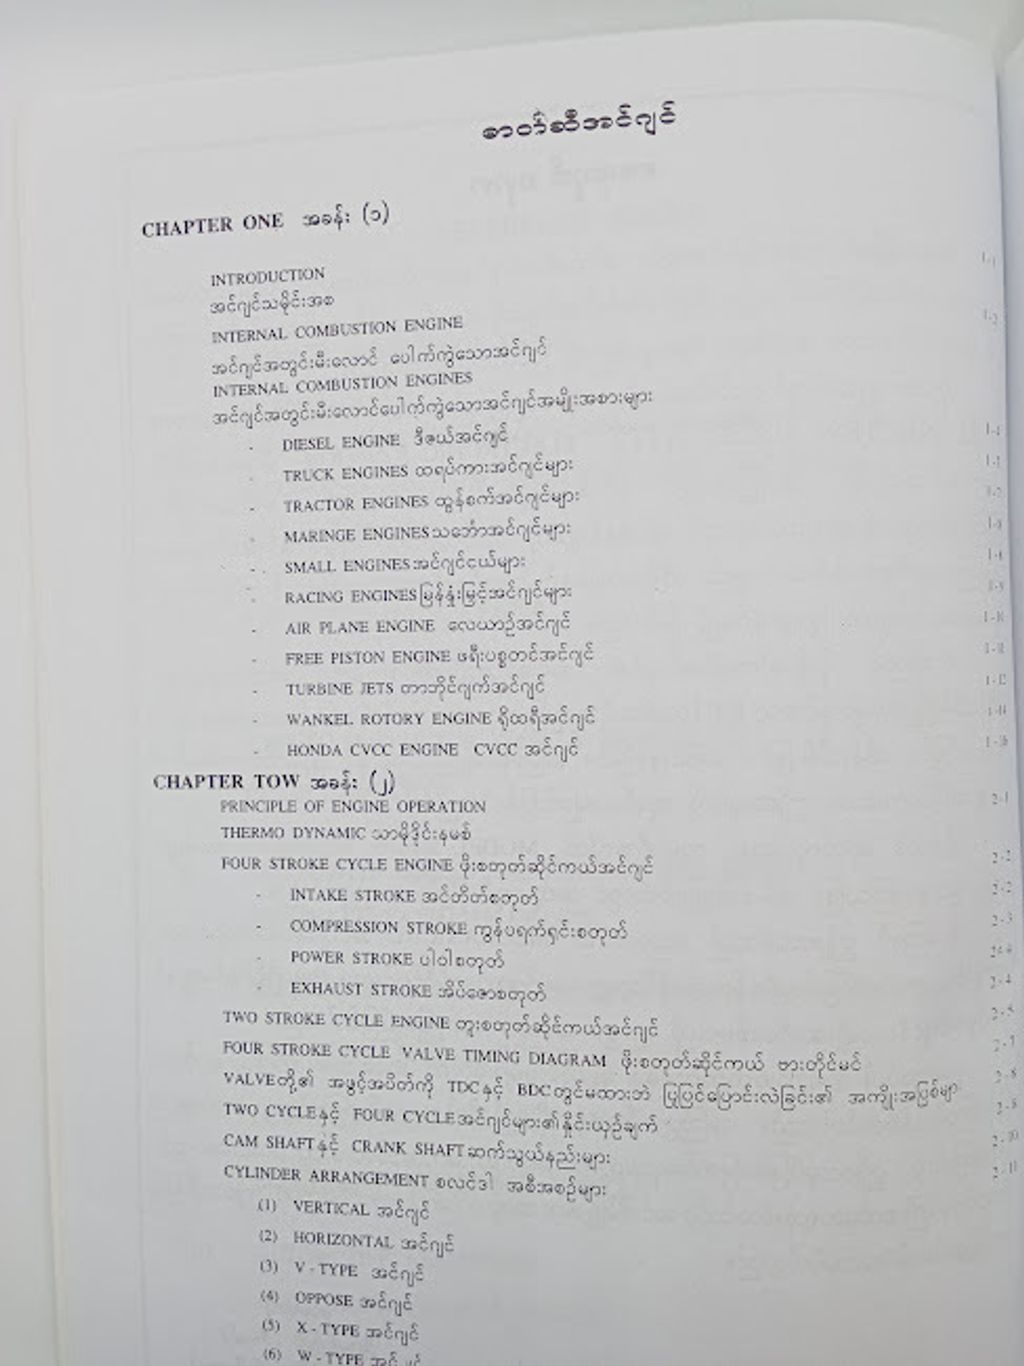 ဓာတ်ဆီအင်ဂျင်
CHAPTER ONE အခန်း (၁)
INTRODUCTION 1-1
အင်ဂျင်သမိုင်းအစ
INTERNAL COMBUSTION ENGINE 1-2
အင်ဂျင်အတွင်းမီးလောင် ပေါက်ကွဲသောအင်ဂျင်
INTERNAL COMBUSTION ENGINES
အင်ဂျင်အတွင်းမီးလောင်ပေါက်ကွဲသောအင်ဂျင်အမျိုးအစားများ
- DIESEL ENGINE ဒီဇယ်အင်ဂျင်
- TRUCK ENGINES ထရပ်ကားအင်ဂျင်များ
- TRACTOR ENGINES ထွန်စက်အင်ဂျင်များ
- MARINGE ENGINES သင်္ဘောအင်ဂျင်များ
- SMALL ENGINES အင်ဂျင်ငယ်များ
- RACING ENGINES မြန်နှုံးမြင့်အင်ဂျင်များ
- AIR PLANE ENGINE လေယာဉ်အင်ဂျင် 1-10
- FREE PISTON ENGINE ဖရီးပစ္စတင်အင်ဂျင် 1-11
- TURBINE JETS တာဘိုင်ဂျက်အင်ဂျင် 1-12
- WANKEL ROTORY ENGINE ရိုထရီအင်ဂျင် 1-14
- HONDA CVCC ENGINE CVCC အင်ဂျင် 1-16
CHAPTER TOW အခန်း (၂)
PRINCIPLE OF ENGINE OPERATION 2-1
THERMO DYNAMIC သာမိုဒိုင်းနမစ်
FOUR STROKE CYCLE ENGINE ဖိုးစတုတ်ဆိုင်ကယ်အင်ဂျင် 2-2
- INTAKE STROKE အင်တိတ်စတုတ် 2-2
- COMPRESSION STROKE ကွန်ပရက်ရှင်းစတုတ် 2-3
- POWER STROKE ပါဝါစတုတ်
- EXHAUST STROKE အိပ်ဇောစတုတ် 2-4
TWO STROKE CYCLE ENGINE တူးစတုတ်ဆိုင်ကယ်အင်ဂျင် 2-5
FOUR STROKE CYCLE VALVE TIMING DIAGRAM ဖိုးစတုတ်ဆိုင်ကယ် ဗားတိုင်မင် 2-7
VALVE တို့၏ အဖွင့်အပိတ်ကို TDC နှင့် BDC တွင်မထားဘဲ ပြုပြင်ပြောင်းလဲခြင်း၏ အကျိုးအပြစ်များ 2-8
TWO CYCLE နှင့် FOUR CYCLE အင်ဂျင်များ၏နှိုင်းယှဉ်ချက် 2-8
CAM SHAFT နှင့် CRANK SHAFT ဆက်သွယ်နည်းများ 2-10
CYLINDER ARRANGEMENT စလင်ဒါ အစီအစဉ်များ 2-11
(1) VERTICAL အင်ဂျင်
(2) HORIZONTAL အင်ဂျင်
(3) V - TYPE အင်ဂျင်
(4) OPPOSE အင်ဂျင်
(5) X - TYPE အင်ဂျင်
(6) W - TYPE အင်ဂျင်